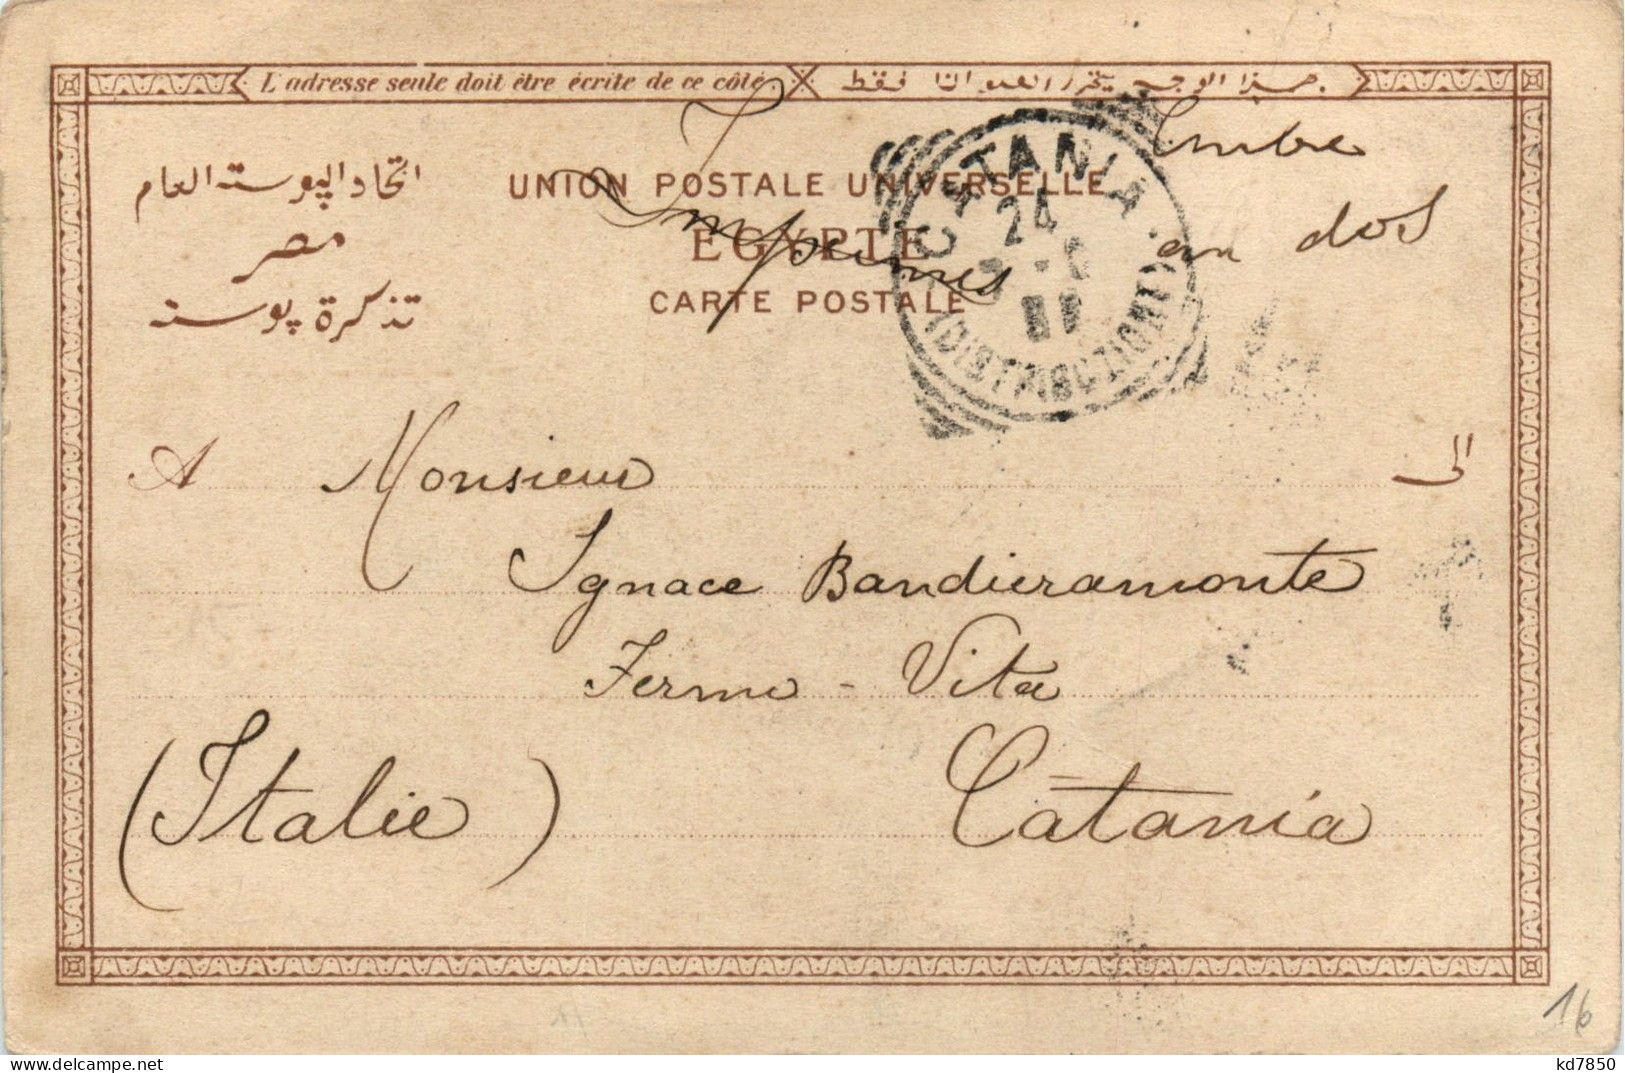 L'adresse seule doit être écrite de ce côté.
بهذا الوجه يتحرر العنوان فقط
Timbre
au dos
اتحاد البوسته العام
مصر
تذكرة بوسته
UNION POSTALE UNIVERSELLE
EGYPTE
CARTE POSTALE
Imprimés
CATANIA
24
(DISTRIBUZIONE)
A
الى
Monsieur
Ignace Bandieramonte
Fermo-Vita
Catania
(Italie)
16
kd7850